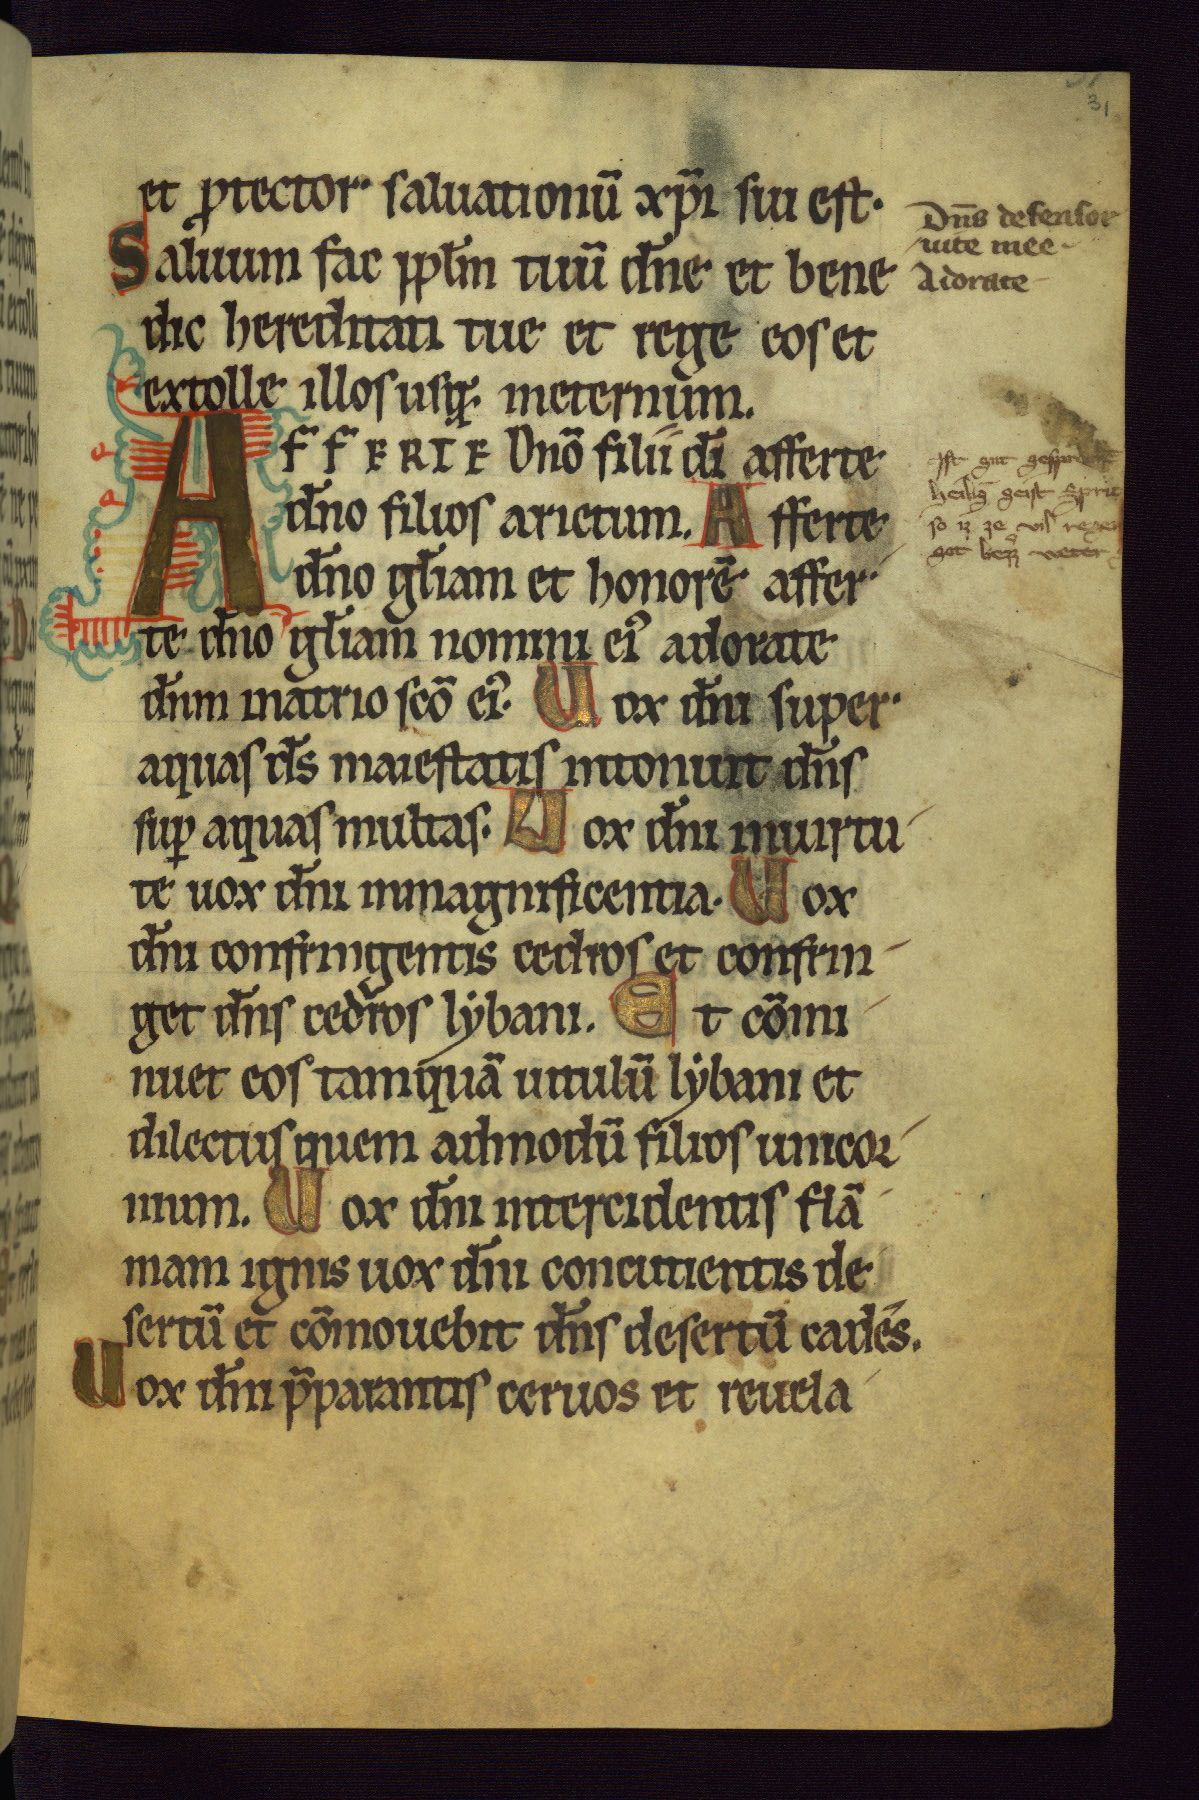 31
et ꝓtector saluationū xp̄i sui est.
Saluum fac ppl̄m tuū dn̄e et bene
dic hereditati tue et rege eos et
extolle illos usq; ineternum.
AFFERTE Dnō filii dī afferte
dn̄o filios arietum. Afferte
dn̄o gl̄iam et honorē affer
te dn̄o gl̄iam nomini eiꝰ adorate
dn̄m inatrio scō eiꝰ. Uox dn̄i super
aquas ds̄ maiestatis intonuit dn̄s
suꝑ aquas multas. Uox dn̄i inuirtu
te uox dn̄i inmagnificentia. Uox
dn̄i confringentis cedros et confrin
get dn̄s cedros lẏbani. Et cōmi
nuet eos tamquā uitulū lẏbani et
dilectus quem admodū filios unicor
nium. Uox dn̄i intercidentis flā
mam ignis uox dn̄i concutientis de
sertū et cōmouebit dn̄s desertū cadēs.
Uox dn̄i p̄parantis ceruos et reuela
Dn̄s defensor
uite mee
Adorate
heilig geist